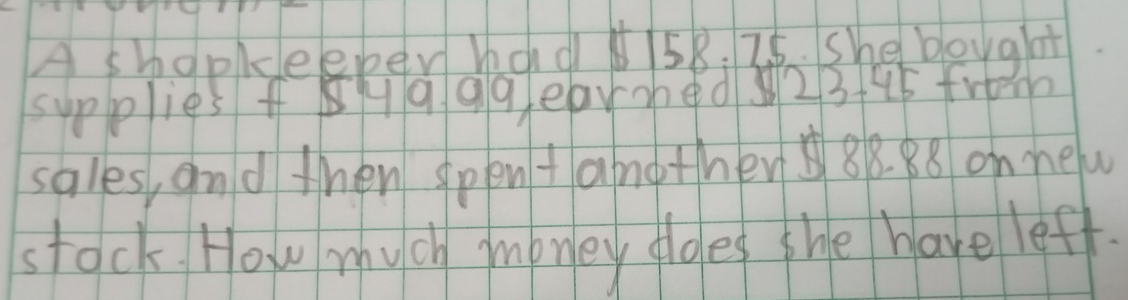 A shopkeeper had $158.75. she bought
supplies f $49.99, earned $23.45 from
sales, and then spent another $88.88 on new
stock. How much money does she have left.